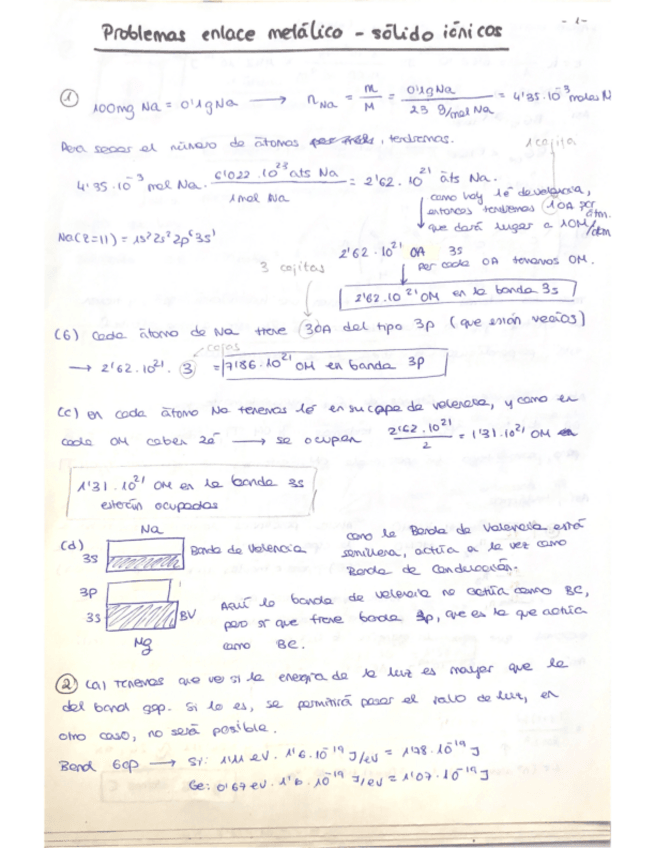 -1-
Problemas enlace metálico - sólido iónicos
① 100mg Na = 0'1gNa → nNa = m/M = 0'1gNa / 23 g/mol Na = 4'35·10⁻³ moles N
Para saber el número de átomos, tendremos. 1 cajita
4'35·10⁻³ mol Na · 6'022·10²³ ats Na / 1 mol Na = 2'62·10²¹ ats Na.
como hay 1é de valencia,
entonces tendremos 1OA por átm.
que dará lugar a 1OM/átom
Na(Z=11) = 1s²2s²2p⁶3s¹
2'62·10²¹ OA 3s
3 cajitas
por cada OA tenemos OM.
2'62·10²¹ OM en la banda 3s
(b) Cada átomo de Na tiene 3OA del tipo 3p (que están vacíos)
cajas
→ 2'62·10²¹ · 3 = 7'86·10²¹ OM en banda 3p
(c) en cada átomo Na tenemos 1é en su capa de valencia, y como en
cada OM caben 2é → se ocupan 2'62·10²¹ / 2 = 1'31·10²¹ OM en
1'31·10²¹ OM en la banda 3s
estarán ocupados
Na
(d)
3s Banda de Valencia
como la Banda de Valencia está
semillena, actúa a la vez como
Banda de Conducción.
3p
3s BV
Mg
Aquí la banda de valencia no actúa como BC,
pero sí que tiene banda 3p, que es la que actúa
como BC.
② (a) Tenemos que ver si la energía de la luz es mayor que la
del band gap. Si lo es, se permitirá pasar el rayo de luz, en
otro caso, no será posible.
Band Gap → Si: 1'11 eV · 1'6·10⁻¹⁹ J/eV = 1'78·10⁻¹⁹ J
Ge: 0'67 eV · 1'6·10⁻¹⁹ J/eV = 1'07·10⁻¹⁹ J